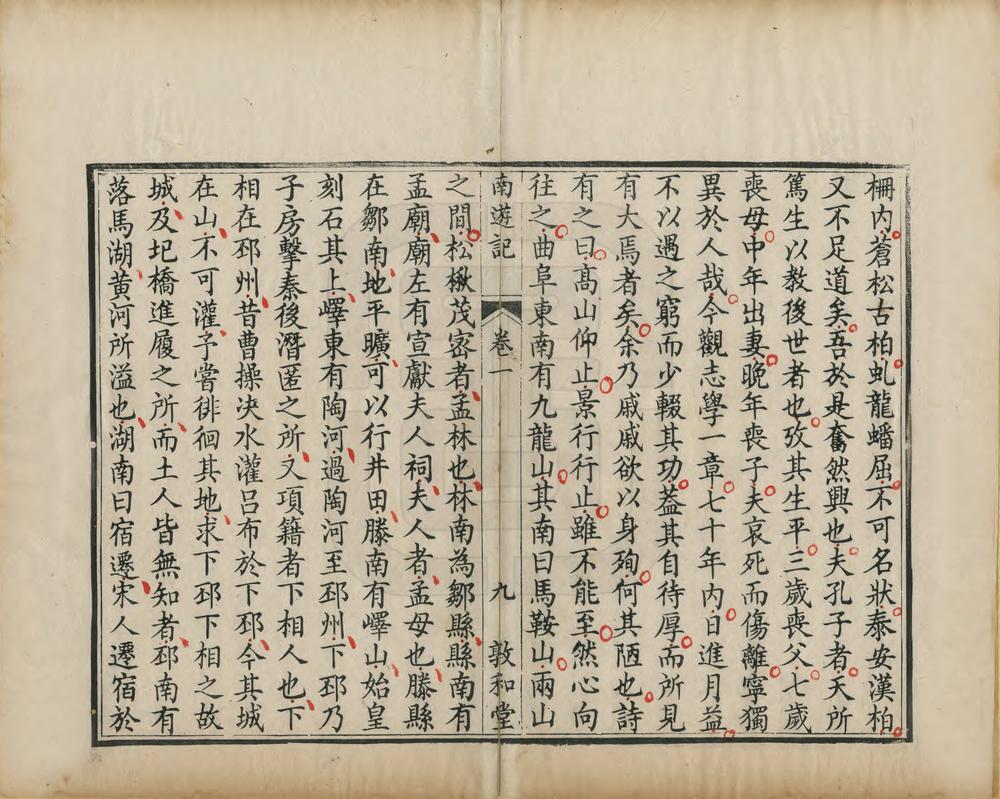 柵内蒼松古柏虬龍蟠屈不可名狀泰安漢柏
又不足道矣吾於是奮然興也夫孔子者天所
篤生以教後世者也攷其生平三歲喪父七歲
喪母中年出妻晚年喪子夫哀死而傷離寧獨
異於人哉今觀志學一章七十年内日進月益
不以遇之窮而少輟其功葢其自待厚而所見
有大焉者矣余乃戚戚欲以身殉何其陋也詩
有之曰高山仰止景行行止雖不能至然心向
往之曲阜東南有九龍山其南曰馬鞍山兩山
南遊記 卷一 九 敦和堂
之間松楸茂密者孟林也林南為鄒縣縣南有
孟廟廟左有宣獻夫人祠夫人者孟母也滕縣
在鄒南地平曠可以行井田滕南有嶧山始皇
刻石其上嶧東有陶河過陶河至邳州下邳乃
子房擊秦後潛匿之所又項籍者下相人也下
相在邳州昔曹操决水灌呂布於下邳今其城
在山不可灌予嘗徘徊其地求下邳下相之故
城及圯橋進履之所而土人皆無知者邳南有
落馬湖黄河所溢也湖南曰宿遷宋人遷宿於